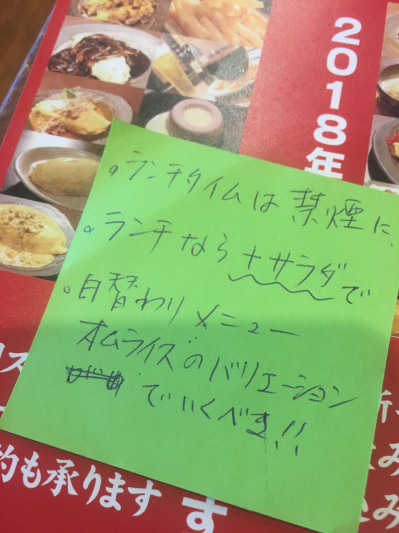 2018年
。ランチタイムは禁煙に、
。ランチなら+サラダで
。日替わりメニュー
オムライスのバリエーション
でいくべき!!
約も承ります
す